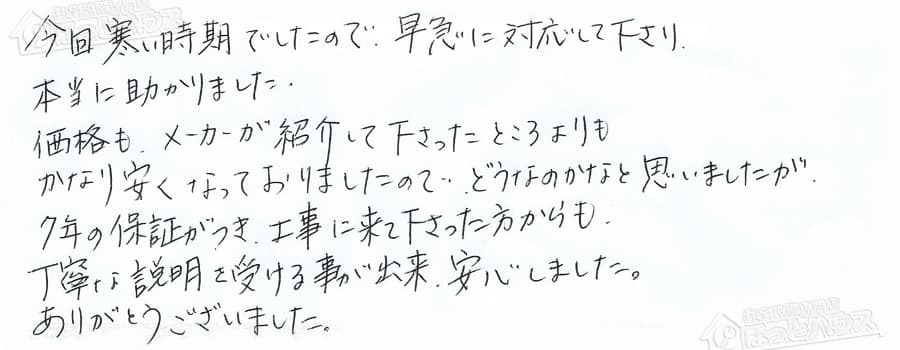 今回寒い時期でしたので、早急に対応して下さり、
本当に助かりました。
価格も、メーカーが紹介して下さったところよりも
かなり安くなっておりましたので、どうなのかなと思いましたが、
7年の保証がつき、工事に来て下さった方からも、
丁寧な説明を受ける事が出来、安心しました。
ありがとうございました。
ほっとハウス